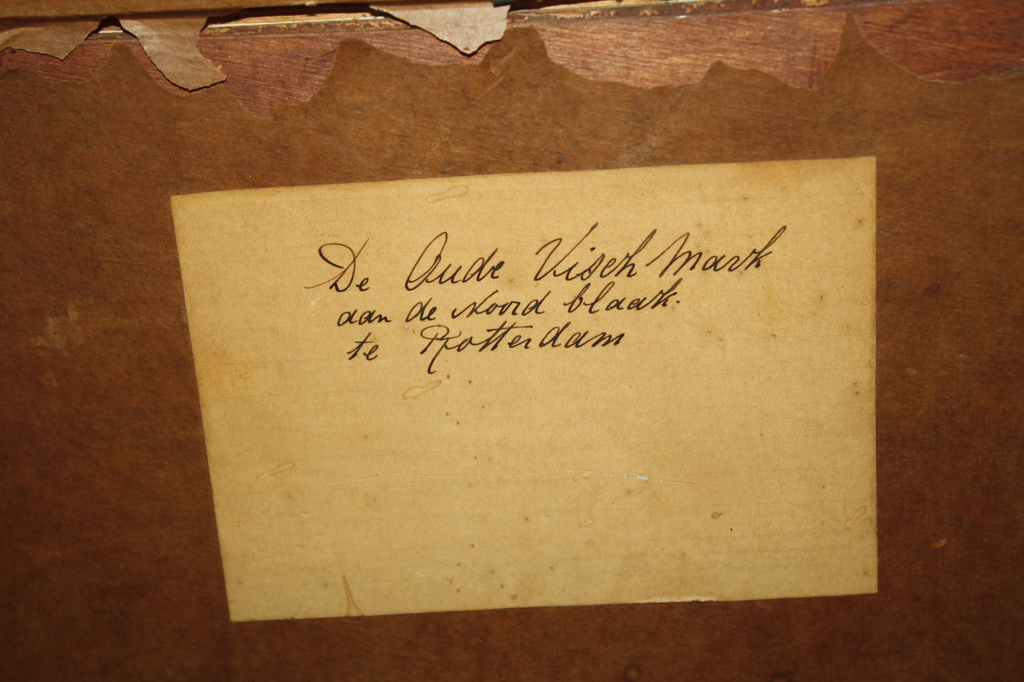 De Oude Visch Mark
aan de Noord blaak.
te Rotterdam